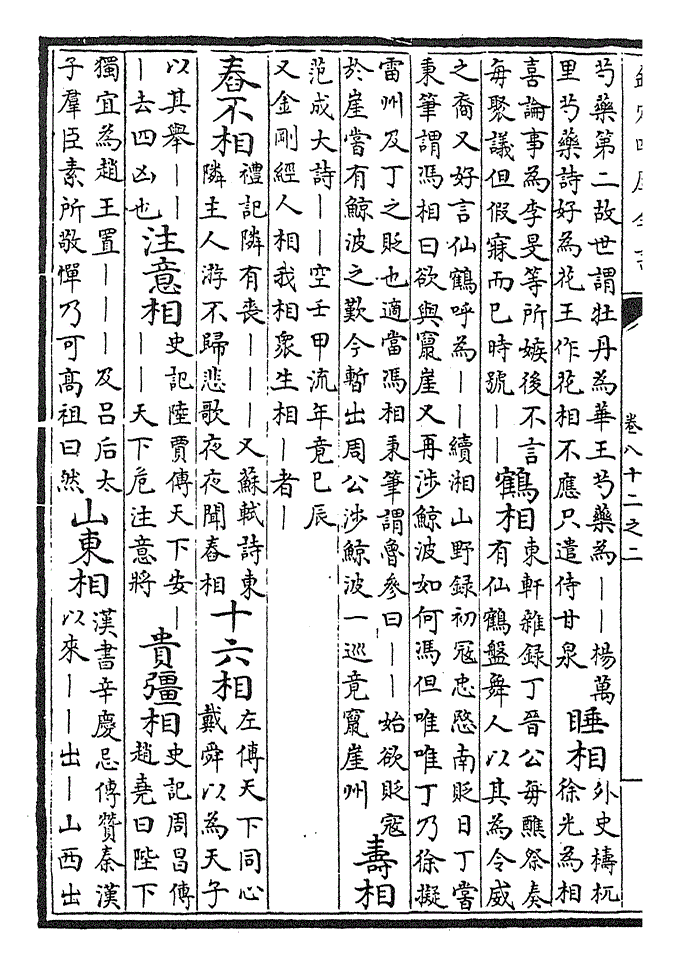 卷八十二之二
芍藥第二故世謂牡丹為華王芍藥為——楊萬
里芍藥詩好為花王作花相不應只遣侍甘泉
睡相
外史檮杌
徐光為相
喜論事為李旻等所嫉後不言
每聚議但假寐而已時號——
鶴相
東軒雜録丁晉公每醮祭奏
有仙鶴盤舞人以其為令威
之裔又好言仙鶴呼為——續湘山野録初寇忠愍南貶日丁當
秉筆謂馮相曰欲與竄崖又再涉鯨波如何馮但唯唯丁乃徐擬
雷州及丁之貶也適當馮相秉筆謂魯參曰——始欲貶寇
於崖當有鯨波之歎今暫出周公涉鯨波一巡竟竄崖州
壽相
范成大詩——空壬甲流年竟巳辰
又金剛經人相我相衆生相—者—
舂不相
禮記隣有喪———又蘇軾詩東
隣主人游不歸悲歌夜夜聞舂相
十六相
左傳天下同心
戴舜以為天子
以其舉——
—去四凶也
注意相
史記陸賈傳天下安—
——天下危注意將
貴彊相
史記周昌傳
趙堯曰陛下
獨宜為趙王置———及吕后太
子羣臣素所敬憚乃可高祖曰然
山東相
漢書辛慶忌傳贊秦漢
以來——出—山西出